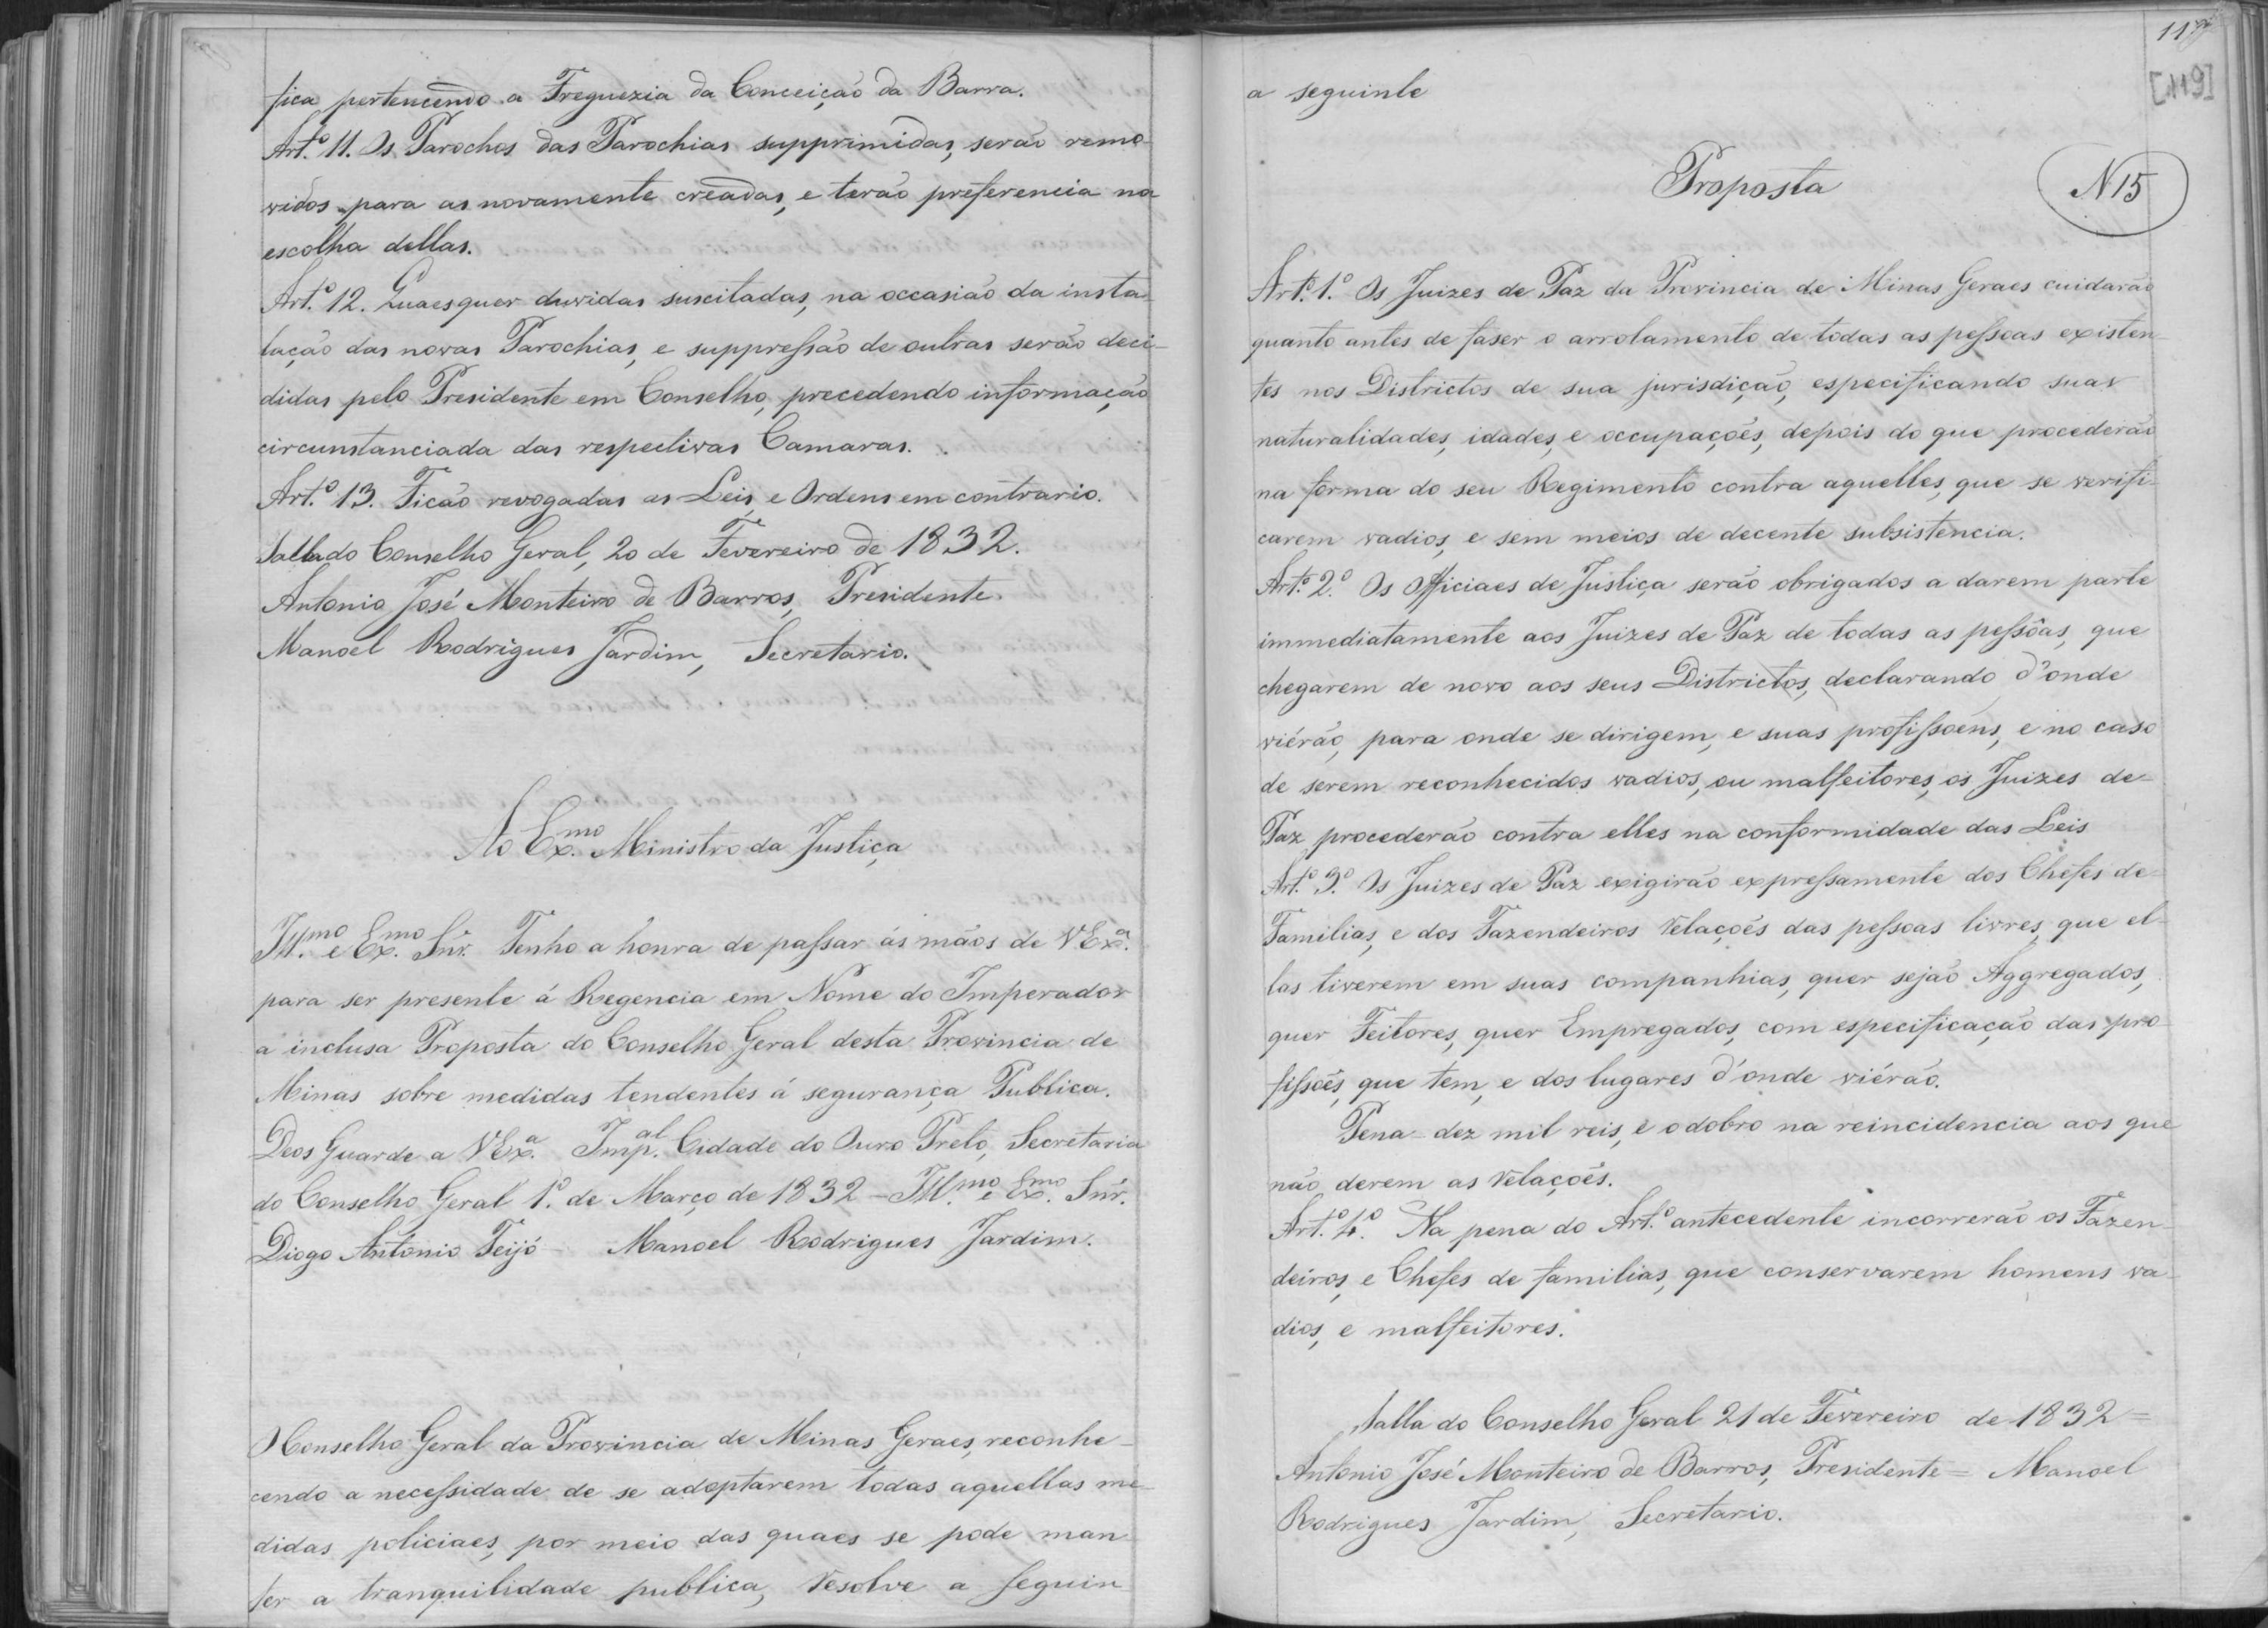 fica pertencendo a Freguezia da Conceição da Barra.
Art.º 11. Os Parochos das Parochias supprimidas, serão remo-
vidos para as novamente creadas, e terão preferencia na
escolha dellas.
Art.º 12. Quaesquer duvidas suscitadas, na occasião da insta-
lação das novas Parochias, e suppressão de outras serão deci-
didas pelo Presidente em Conselho, precedendo informação
circunstanciada das respectivas Camaras.
Art.º 13. Ficão revogadas as Leis, e Ordens em contrario.
Salla do Conselho Geral, 20 de Fevereiro de 1832.
Antonio José Monteiro de Barros, Presidente.
Manoel Rodrigues Jardim, Secretario.
Ao Ex.mo Ministro da Justiça
Ill.mo e Ex.mo Snr. Tenho a honra de passar ás mãos de VEx.ª
para ser presente á Regencia em Nome do Imperador
a inclusa Proposta do Conselho Geral desta Provincia de
Minas sobre medidas tendentes á segurança Publica.
Deos Guarde a VEx.ª Imp.al Cidade do Ouro Preto, Secretaria
do Conselho Geral 1.º de Março de 1832 - Ill.mo e Ex.mo Snr.
Diogo Antonio Feijó - Manoel Rodrigues Jardim.
O Conselho Geral da Provincia de Minas Geraes, reconhe-
cendo a necessidade de se adoptarem todas aquellas me-
didas policiaes, por meio das quaes se pode man-
ter a tranquilidade publica, resolve a seguin
[119]
a seguinte
Proposta
N 15
Art.º 1.º Os Juizes de Paz da Provincia de Minas Geraes cuidarão
quanto antes de faser o arrolamento de todas as pessoas existen-
tes nos Districtos de sua jurisdição, especificando suas
naturalidades, idades, e occupações, depois do que procederão
na forma do seu Regimento contra aquelles, que se verifi-
carem vadios, e sem meios de decente subsistencia.
Art.º 2.º Os Officiaes de Justiça serão obrigados a darem parte
immediatamente aos Juizes de Paz de todas as pessôas, que
chegarem de novo aos seus Districtos, declarando d'onde
viérão, para onde se dirigem, e suas profissoens, e no caso
de serem reconhecidos vadios, ou malfeitores, os Juizes de-
Paz procederão contra elles na conformidade das Leis
Art.º 3.º Os Juizes de Paz exigirão expressamente dos Chefes de-
Familias, e dos Fazendeiros relações das pessoas livres, que el-
las tiverem em suas companhias, quer sejão Aggregados,
quer Feitores, quer Empregados, com especificação das pro-
fissões, que tem, e dos lugares d'onde viérão.
Pena - dez mil reis, e o dobro na reincidencia aos que
não derem as relações.
Art.º 4.º Na pena do Art.º antecedente incorrerão os Fazen-
deiros, e Chefes de familias, que conservarem homens va-
dios, e malfeitores.
Salla do Conselho Geral 21 de Fevereiro de 1832 =
Antonio José Monteiro de Barros, Presidente = Manoel
Rodrigues Jardim, Secretario.